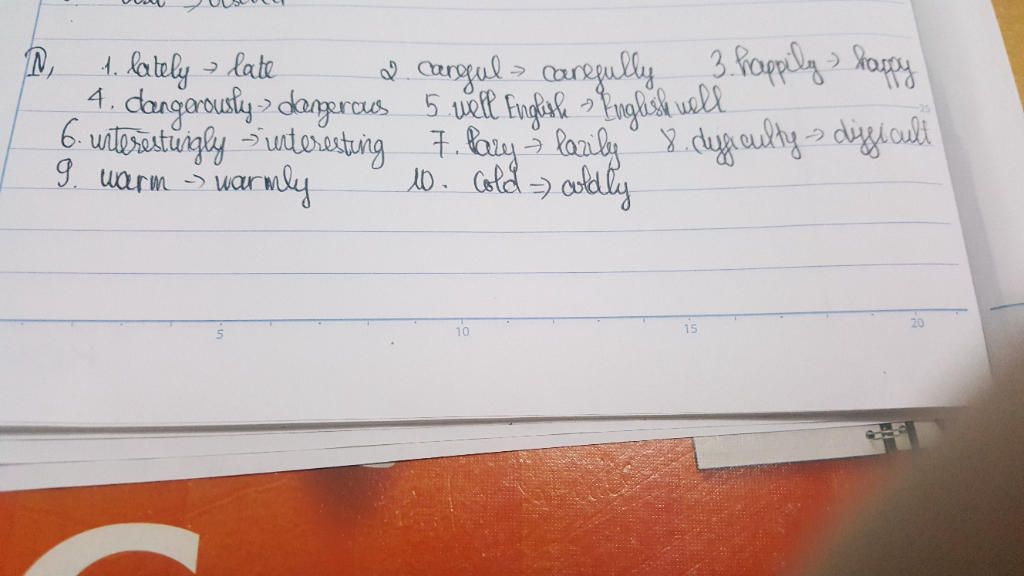 IV, 1. lately → late 2. careful → carefully 3. happily → happy
4. dangerously → dangerous 5. well English → English well
6. interestingly → interesting 7. lazy → lazily 8. difficulty → difficult
9. warm → warmly 10. cold → coldly
25
5 10 15 20